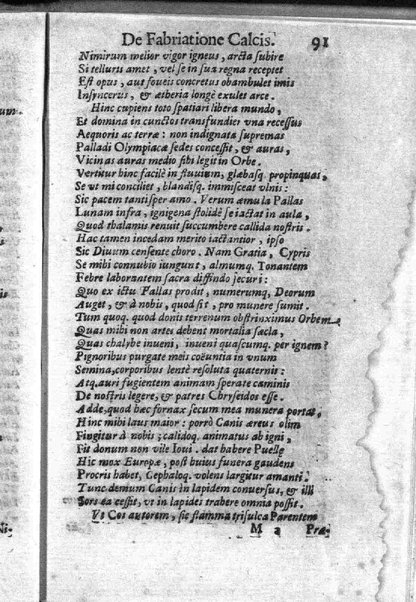 De Fabriatione Calcis. 91
Nimirum melior vigor igneus, arcta subire
Si telluris amet, vel se in sua regna receptet
Est opus, aut foueis concretus obambulet imis
Insyncerus, & ætheria longè exulet arce.
Hinc cupiens toto spatiari libera mundo,
Et domina in cunctos transfundier vna recessus
Aequoris ac terræ: non indignata supremas
Palladi Olympiacæ sedes concessit, & auras,
Vicinas auras medio sibi legit in Orbe.
Vertitur hinc facilè in fluuium, glæbasq. propinquas,
Se vt mi conciliet, blandisq. immisceat vlnis:
Sic pacem tantisper amo. Verum æmula Pallas
Lunam infra, ignigena stolidè se iactat in aula,
Quod thalamis renuit succumbere callida nostris.
Hac tamen incedam merito iactantior, ipso
Sic Diuûm censente choro. Nam Gratia, Cypris
Se mihi connubio iungunt, almumq. Tonantem
Febre laborantem sacra diffindo securi:
Quo ex ictu Pallas prodit, numerumq. Deorum
Auget, & à nobis, quod sit, pro munere sumit.
Tum quoq. quod donis terrenum obstrinximus Orbem
Quas mihi non artes debent mortalia sæcla,
Quas chalybe inueni, inueni quascumq. per ignem?
Pignoribus purgate meis coëuntia in vnum
Semina, corporibus lentè resoluta quaternis:
Atq. auri fugientem animam sperate caminis
De nostris legere, & patres Chryseidos esse.
Adde, quod hæc fornax secum mea munera portat,
Hinc mihi laus maior: porrò Canis æreus olim
Fingitur à nobis; calidoq. animatus ab igni,
Fit donum non vile Ioui. dat habere Puellę
Hic mox Europæ, post huius funera gaudens
Procris habet, Cephaloq. volens largitur amanti.
Tunc demum Canis in lapidem conuersus, & illi
Sors ea cessit, vt in lapides trabere omnia possit.
Vt Cos autorem, sic flamma trisulca Parentem
M 2 Præ-